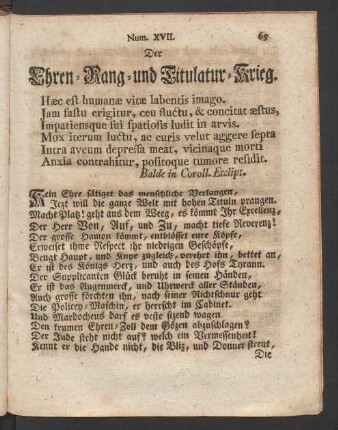 Num. XVII. 65
Der
Ehren-Rang-und Titulatur-Krieg.
Hæc est humanæ vitæ labentis imago.
Jam fastu erigitur, ceu fluctu, & concitat æstus,
Impatiensque sui spatiosis ludit in arvis.
Mox iterum luctu, ac curis velut aggere septa
Intra aveum depressa meat, vicinaque morti
Anxia contrahitur, positoque tumore residit.
Balde in Coroll. Eclipt.
Kein Ehre sätiget das menschliche Verlangen,
Jezt will die ganze Welt mit hohen Tituln prangen.
Macht Platz! geht aus dem Weeg, es kömmt Ihr Excellenz,
Der Herr Von, Auf, und Zu, macht tiefe Reverenz!
Der grosse Hamon kömmt, entblösset eure Köpfe,
Erweiset ihme Respect ihr niedrigen Geschöpfe,
Beugt Haupt, und Knye zugleich, verehrt ihn, bettet an,
Er ist des Königs Herz, und auch des Hofs Tyrann.
Der Supplicanten Glück beruht in seinen Händen,
Er ist das Augenmerck, und Uhrwerck aller Ständen,
Auch grosse förchten ihn, nach seiner Richtschnur geht
Die Policey-Maschin, er herrscht im Cabinet.
Und Mardocheus darf es veste sizend wagen
Den krumen Ehren-Zoll dem Gözen abzuschlagen?
Der Jude steht nicht auf? welch ein Vermessenheit!
Kennt er die Hande nicht, die Bliz, und Donner streut,
Die